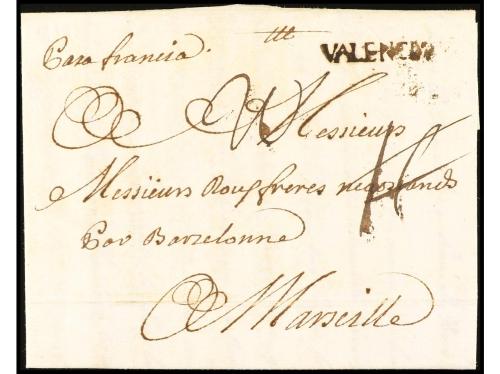 Para francia.
VALENCIA
A Messieurs
Messieurs Roux freres negotiands
Par Barzelonne
A Marseille